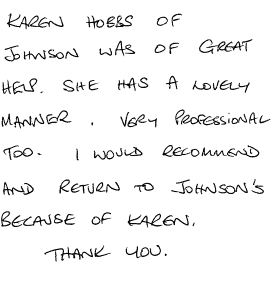 KAREN HOBBS OF
JOHNSON WAS OF GREAT
HELP. SHE HAS A LOVELY
MANNER, VERY PROFESSIONAL
TOO. I WOULD RECOMMEND
AND RETURN TO JOHNSON'S
BECAUSE OF KAREN.
THANK YOU.